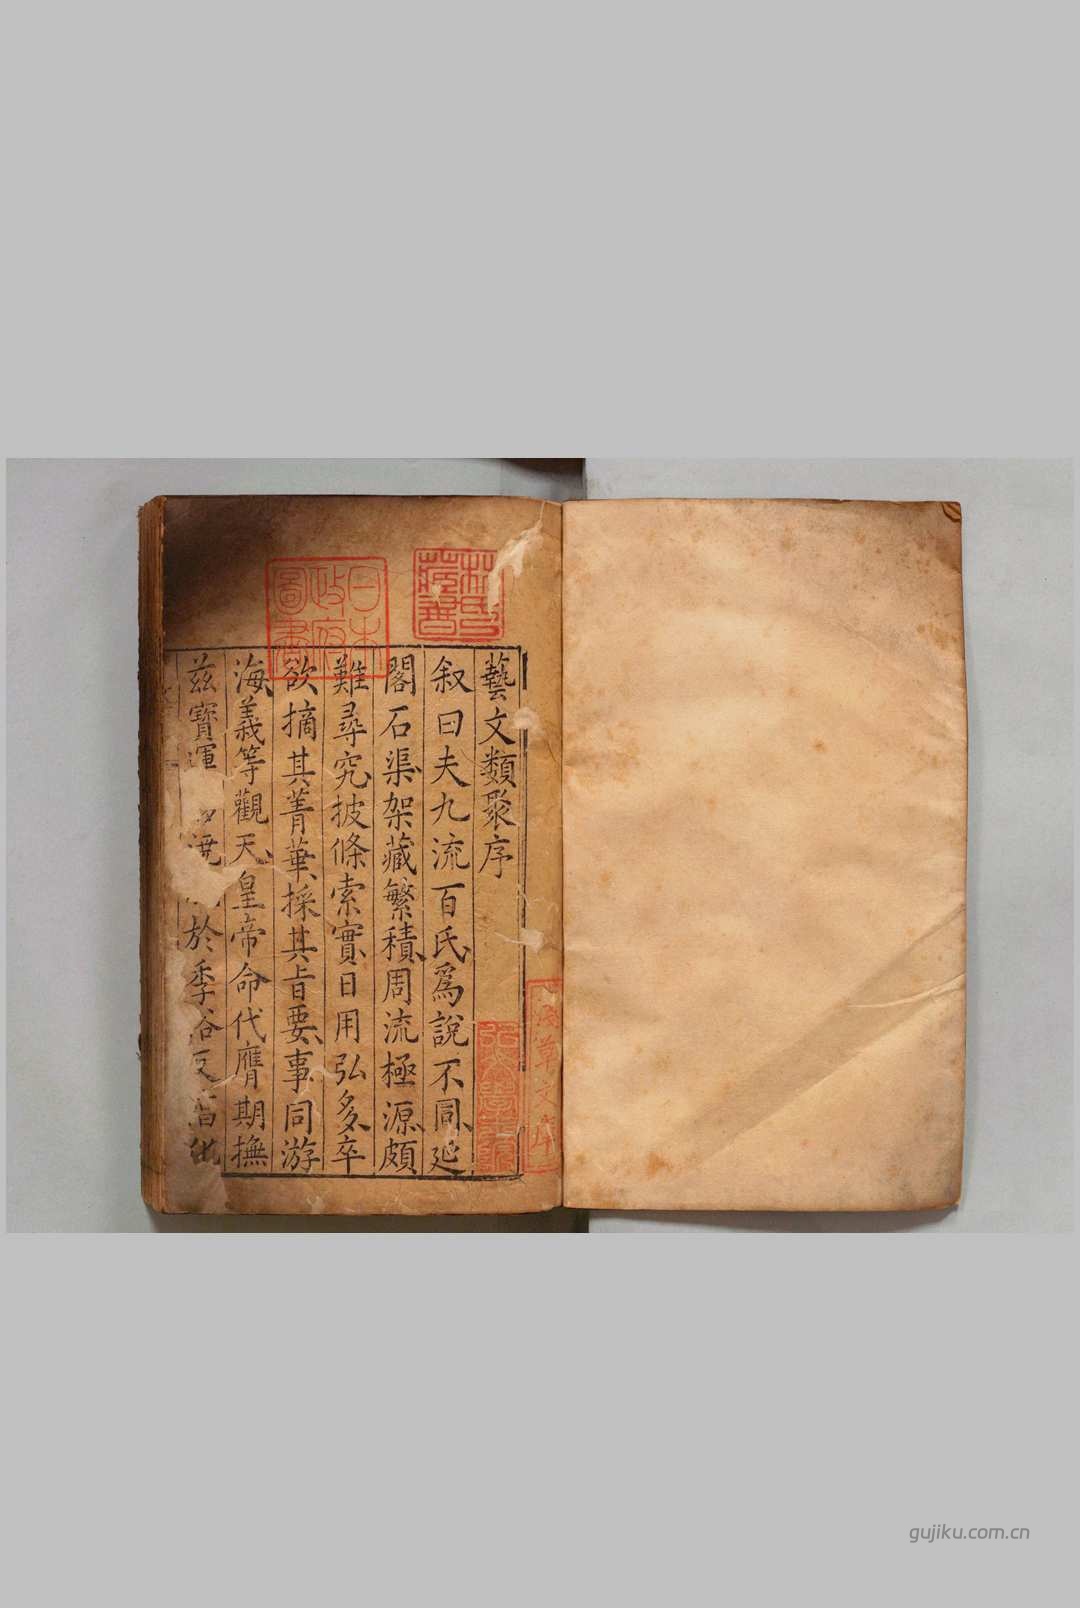 藝文類聚序
叙曰夫九流百氏爲說不同延
閣石渠架藏繁積周流極源頗
難尋究披條索實日用弘多卒
欲摘其菁華採其旨要事同游
海義等觀天皇帝命代膺期撫
茲寶運 澆 於季俗反
林氏藏書
日本政府圖書
gujiku.com.cn